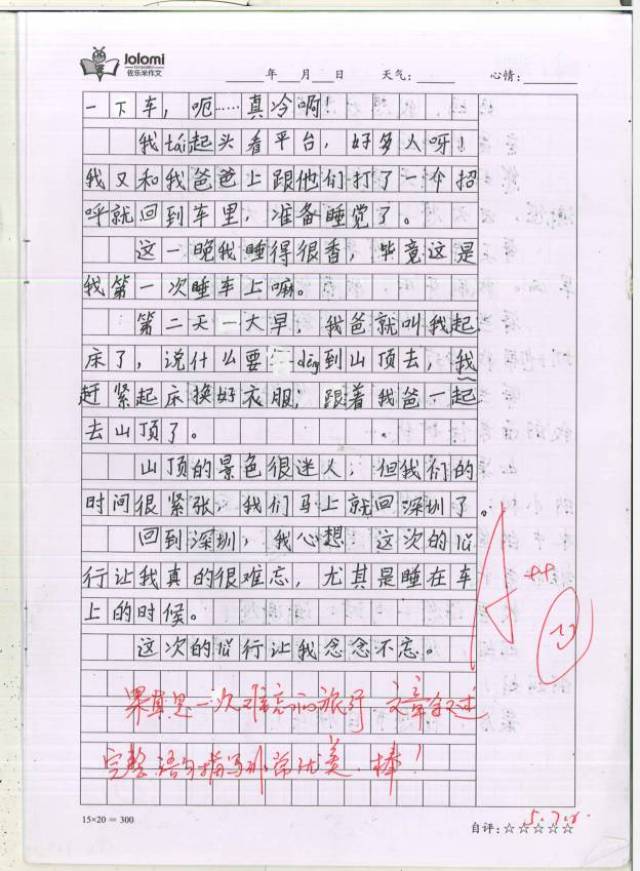 lolomi
佐乐米作文
年 月 日 天气: 心情:
一下车，呃……真冷啊！
我tái起头看平台，好多人呀！
我又和我爸爸上跟他们打了一个招
呼就回到车里，准备睡觉了。
这一晚我睡得很香，毕竟这是
我第一次睡车上嘛。
第二天一大早，我爸就叫我起
床了，说什么要dēng到山顶去，我
赶紧起床换好衣服，跟着我爸一起
去山顶了。
山顶的景色很迷人，但我们的
时间很紧张，我们马上就回深圳了。
回到深圳，我心想 这次的
行让我真的很难忘，尤其是睡在车
上的时候。
这次的 行让我念念不忘。
A++
果真是一次难忘的旅行，文章叙述
完整，语句描写非常优美，棒！
15×20＝300
自评:☆☆☆☆☆